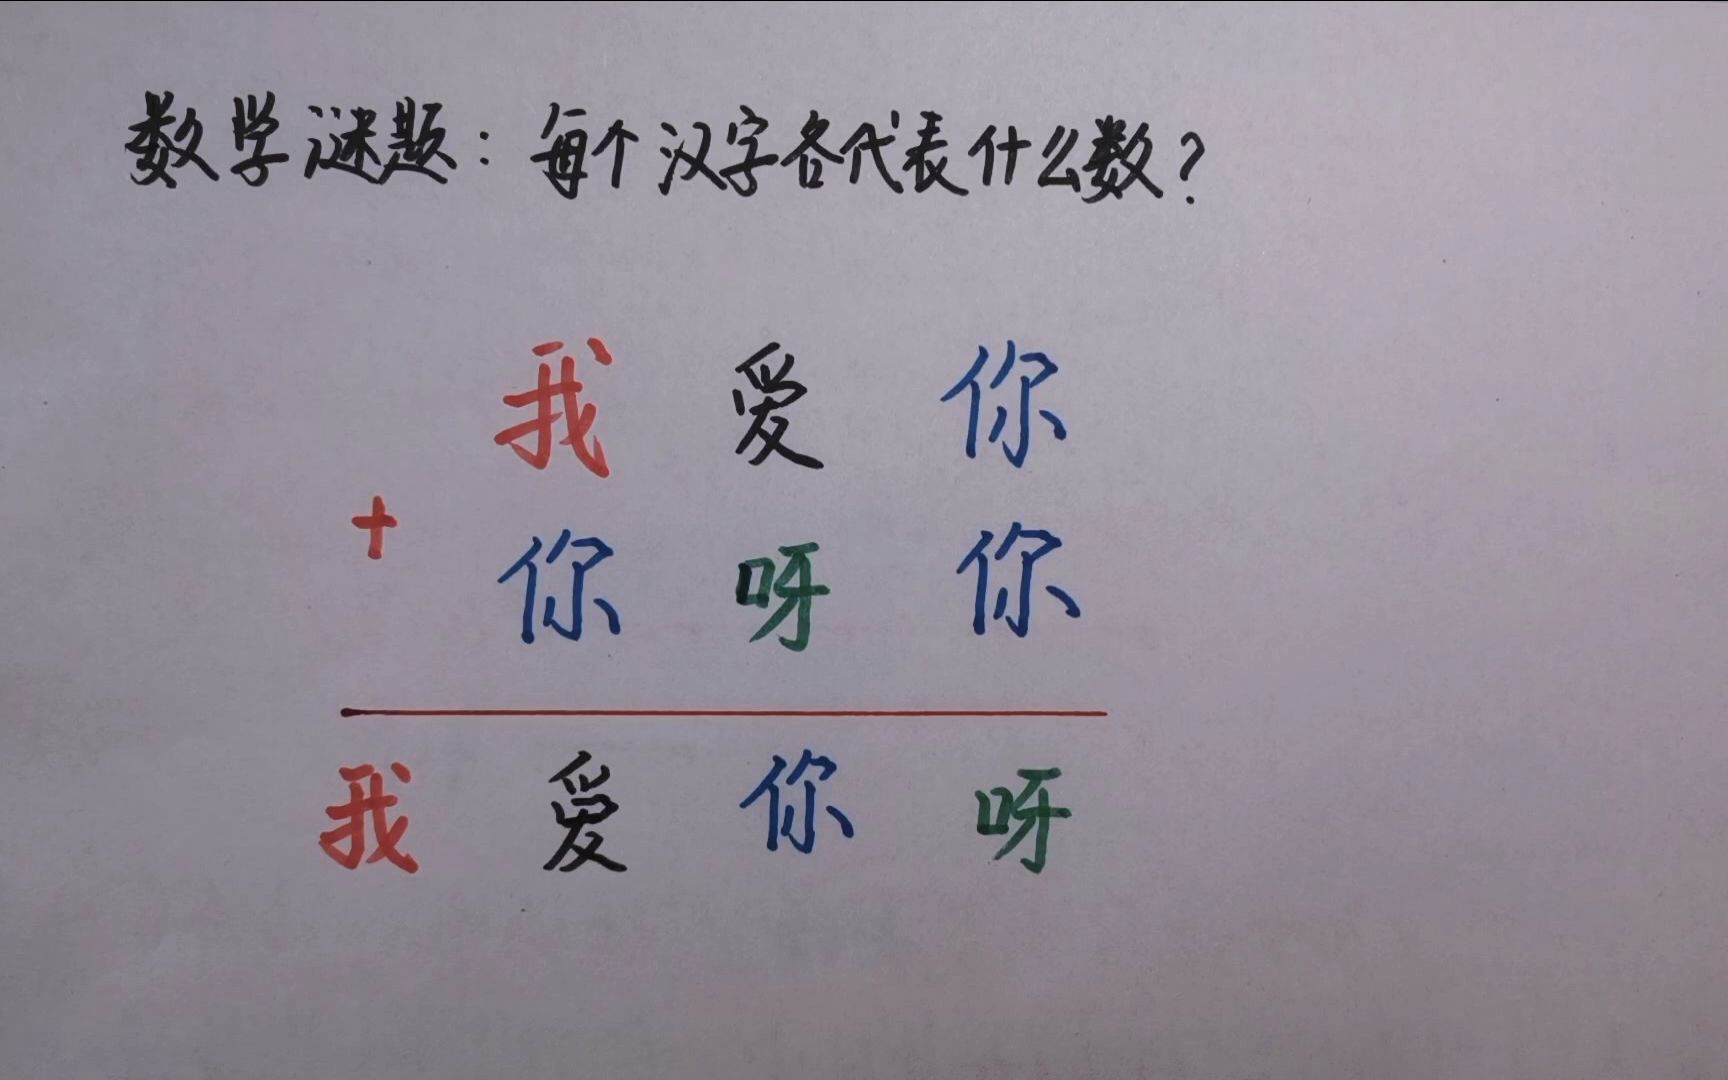 数学谜题：每个汉字各代表什么数？
我 爱 你
+ 你 呀 你
我 爱 你 呀